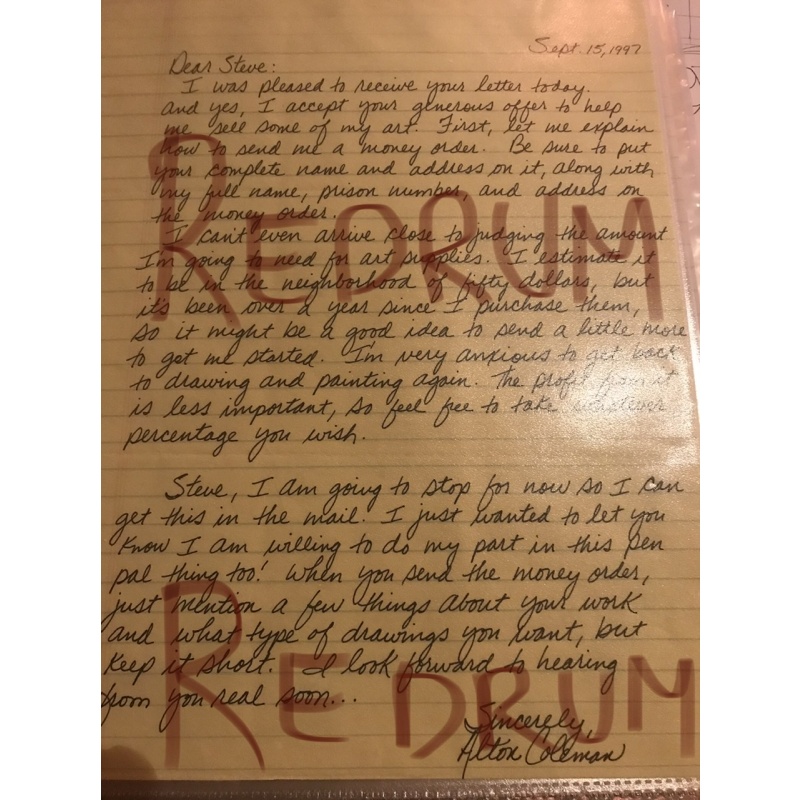 Sept. 15, 1997
Dear Steve:
I was pleased to receive your letter today.
and yes, I accept your generous offer to help
me sell some of my art. First, let me explain
how to send me a money order. Be sure to put
your complete name and address on it, along with
my full name, prison number, and address on
the money order.
I can't even arrive close to judging the amount
I'm going to need for art supplies. I estimate it
to be in the neighborhood of fifty dollars, but
it's been over a year since I purchase them,
so it might be a good idea to send a little more
to get me started. I'm very anxious to get back
to drawing and painting again. The profit from it
is less important, so feel free to take whatever
percentage you wish.
Steve, I am going to stop for now so I can
get this in the mail. I just wanted to let you
know I am willing to do my part in this pen
pal thing too! When you send the money order,
just mention a few things about your work
and what type of drawings you want, but
keep it short. I look forward to hearing
from you real soon...
Sincerely,
Alton Coleman
REDRUM
REDRUM